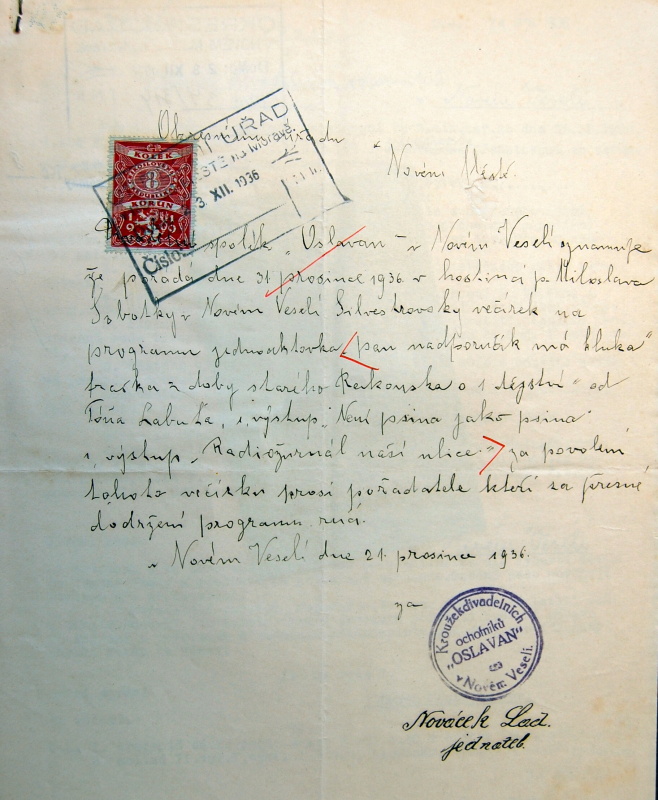 Okresnímu úřadu
v Novém Městě.
KOLEK
8
KORUN
ÚŘAD
MĚSTĚ na Moravě.
3. XII. 1936
Číslo
spolek „Oslavan" v Novém Veselí oznamuje
že pořádá dne 31. prosince 1936 v hostinci p. Miloslava
Sobotky v Novém Veselí Silvestrovský večírek na
programu jednoaktovka „pan nadporučík má kluka"
fraška z doby starého Rakouska o 1 dějství" od
Tóňa Labuťa, 1, výstup, „Není psina jako psina"
1, výstup „Radiožurnál naší ulice." za povolení
tohoto večírku prosí pořadatelé kteří za přesné
dodržení programu ručí.
v Novém Veselí dne 21. prosince 1936.
za
Kroužek divadelních
ochotníků
„OSLAVAN"
v Novém Veselí.
Nováček Lad.
jednatel.